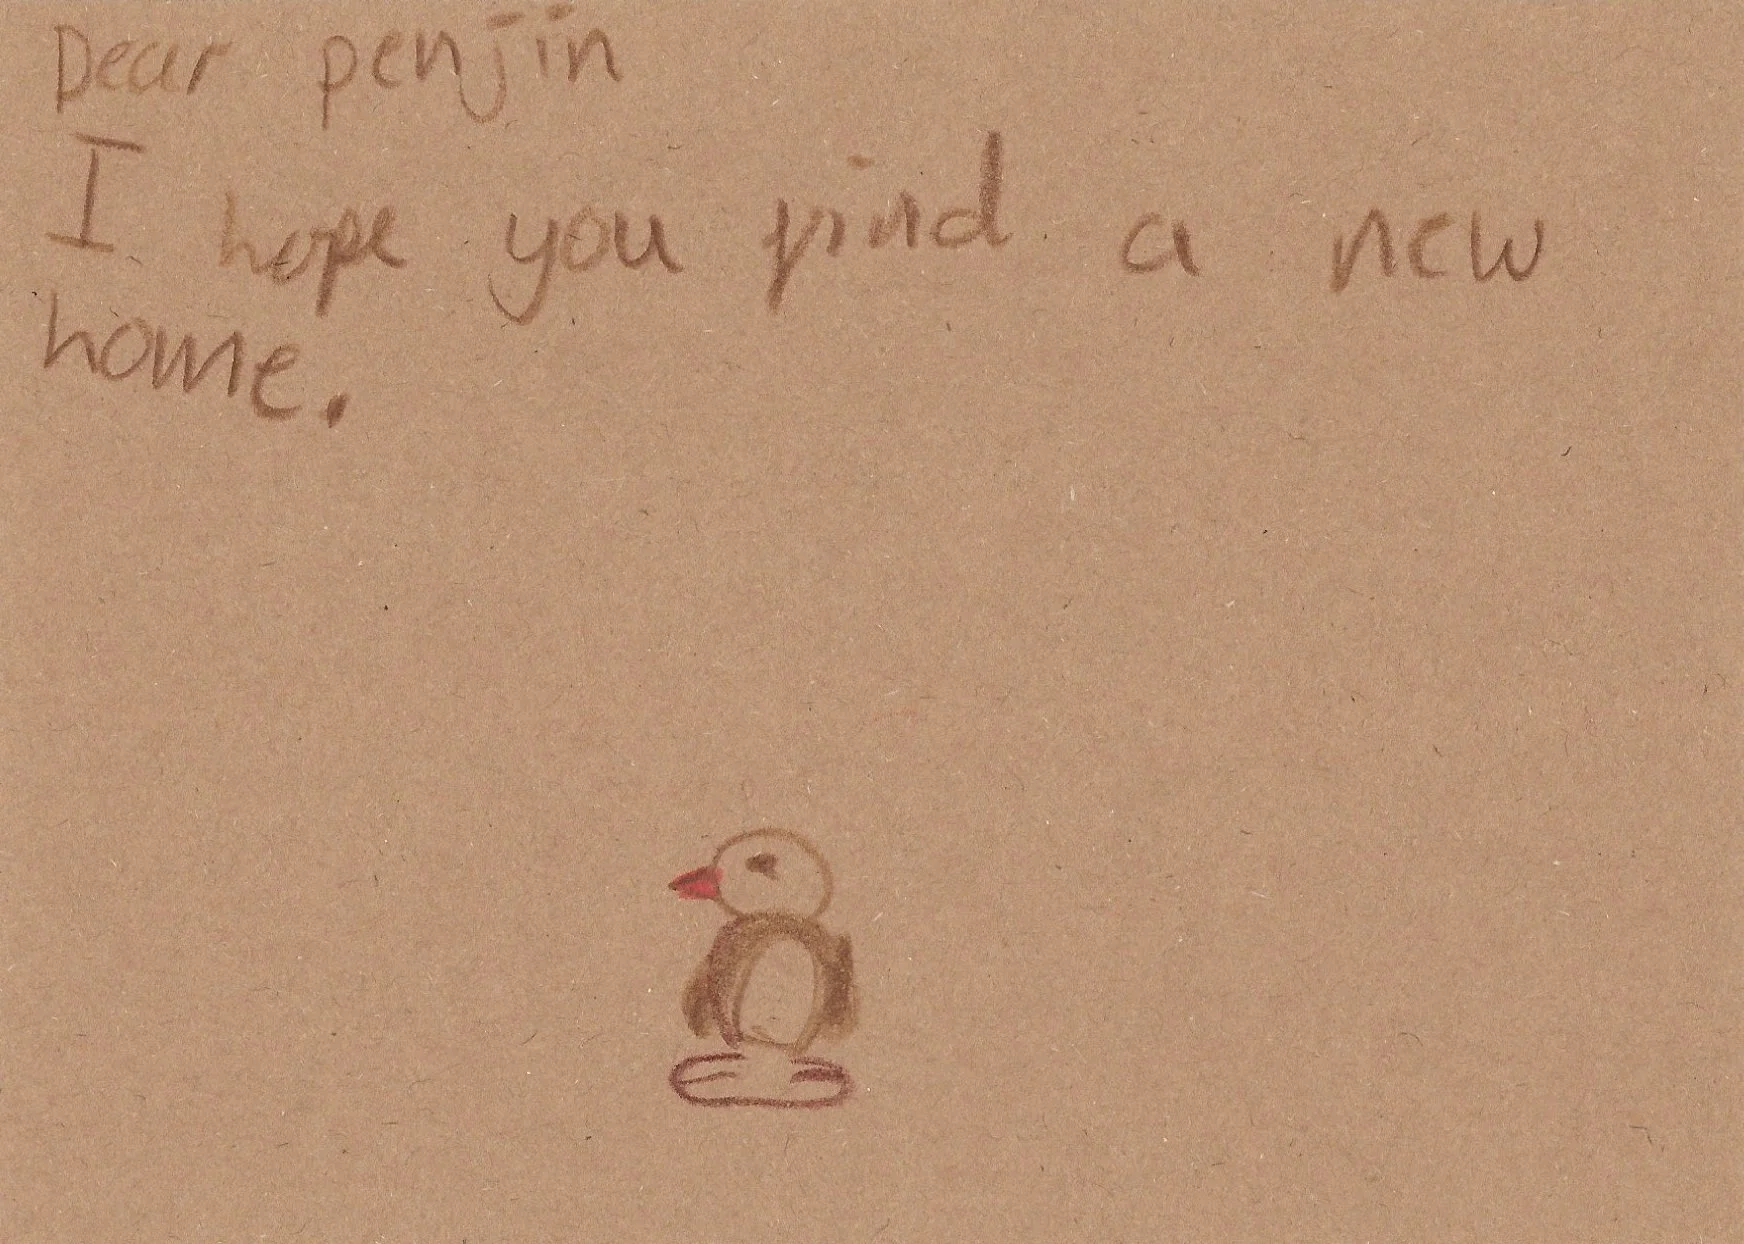 Dear penjin
I hope you find a new
home.